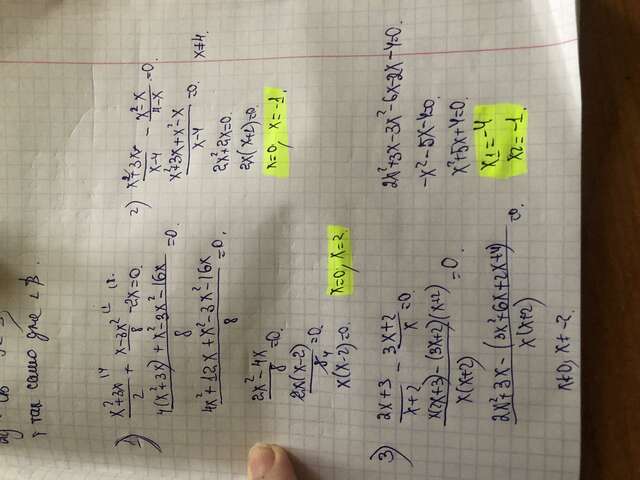 і так само для ∠B.
1) (x²+3x)/2 + (x-3x²)/8 - 2x=0.
(4(x²+3x)+x²-3x²-16x)/8 =0.
(4x²+12x+x²-3x²-16x)/8 =0.
(2x²-4x)/8 =0.
2x(x-2)/8 =0
x(x-2)=0.
x=0, x=2.
2) (x²+3x)/(x-4) - (x²-x)/(4-x) =0.
(x²+3x+x²-x)/(x-4) =0. x≠4.
2x²+2x=0.
2x(x+1)=0.
x=0, x=-1.
3) (2x+3)/(x+2) - (3x+2)/x =0
(x(2x+3)-(3x+2)(x+2))/(x(x+2)) =0.
(2x²+3x-(3x²+6x+2x+4))/(x(x+2)) =0.
x≠0, x≠-2.
2x²+3x-3x²-6x-2x-4=0.
-x²-5x-4=0.
x²+5x+4=0.
x1=-4
x2=-1.